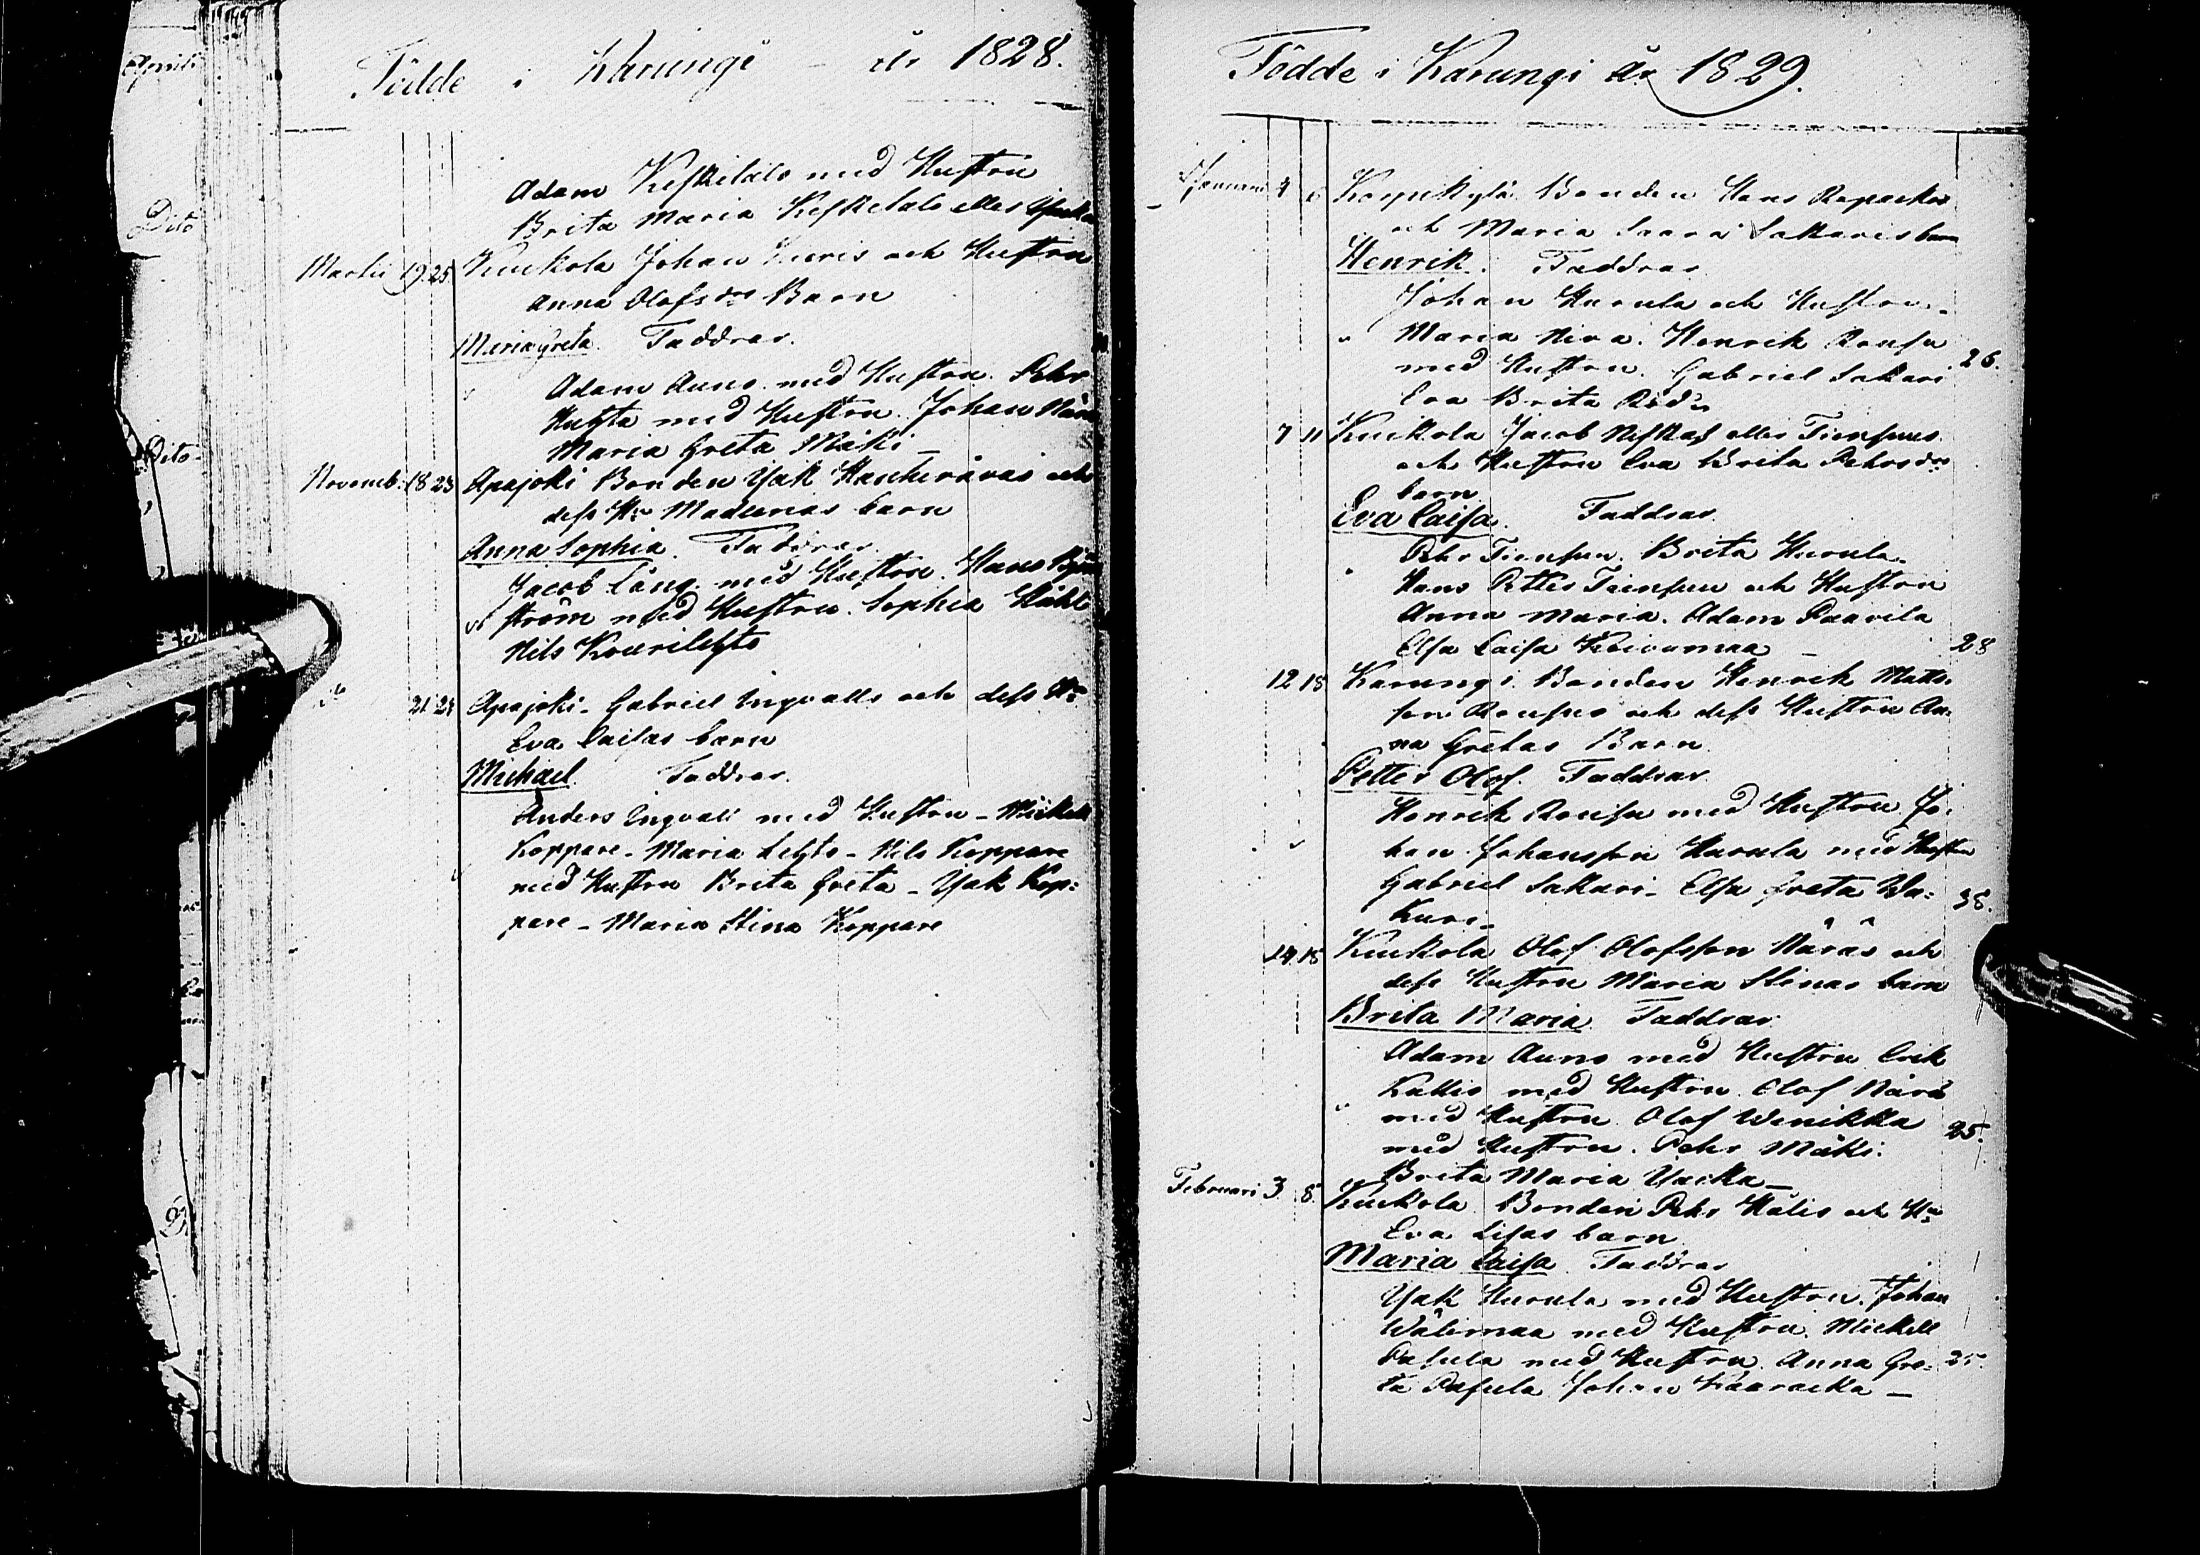 Födde i Karungi år 1828.
Adam Keskitalo med Hustru
Brita Maria Keskitalo eller
Martii 19. 25. Kuckola Johan och Hustru
Anna Olofsdr Barn
Maria Greta. Faddrar.
Adam Auno med Hustru. Pehr
med Hustru. Johan
Maria Greta Mäki
Novemb. 18 23 Apajoki Bonden Isak och
dess Hu Madlenas barn
Anna Sophia. Faddrar.
Jacob Lång med Hustru. Hans
ström med Hustru. Sophia
Nils Kourilehto
21 24 Apajoki. Gabriel Ingvalls och dess Hu
Eva Caisas barn
Michael. Faddrar.
Anders Ingvall med Hustru - Mickel
Koppare - Maria Lehto - Nils Koppare
med Hustru Brita Greta - Isak Kop:
pare - Maria Stina Koppare
Födde i Karungi År 1829.
Januari 4 6 Korpikylä Bonden Hans
och Maria Saara Sakaris barn
Henrik. Faddrar
Johan Hurula och Hustru.
Maria Niva. Henrik Rousu
med Hustru. Gabriel Sakari 26.
Eva Brita
7 11 Kuckola Jacob eller Tiensuus
och Hustru Eva Brita Pehrsdr
barn
Eva Caisa. Faddrar.
Pehr Tiensuu. Brita Hurula.
Hans Petter Tiensuu och Hustru
Anna Maria. Adam Paavila
Elsa Caisa Koivumaa 28
12 18 Karungi. Bonden Henrik Matts
son Rousus och dess Hustru An
na Gretas Barn
Petter Olof. Faddrar
Henrik Rousu med Hustru. Jo:
han Johansson Hurula med Hustru
Gabriel Sakari - Elsa Greta Wa: 38.
kuri -
14. 15 Kuckola Olof Olofsson Näräs och
dess Hustru Maria Stinas barn
Brita Maria. Faddrar
Adam Auno med Hustru Erik
Kallio med Hustru. Olof Närä
med Hustru. Olof Wenikka 25.
med Hustru. Pehr Mäki.
Brita Maria
Februari 3. 8. Kuckola. Bonden Pehr och Hu
Eva Lisas barn
Maria Caisa. Faddrar
Isak Hurula med Hustru. Johan
Wälimaa med Hustru. Mickel
Pasula med Hustru. Anna Gre: 25.
ta Pasula Johan